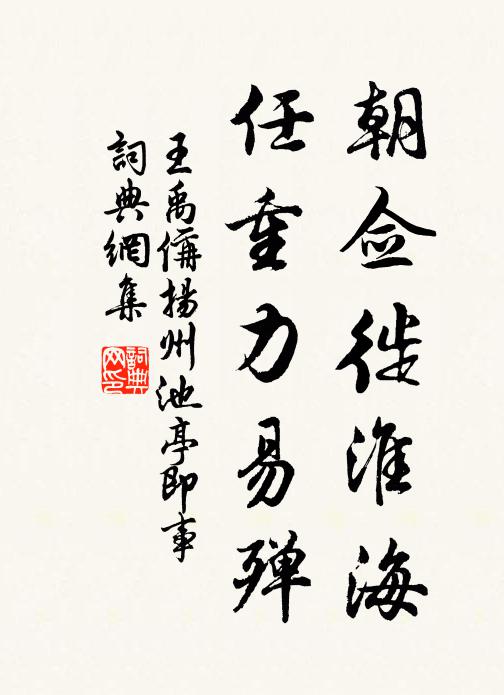 朝佥徙淮海
任重力易殫
王禹偁揚州池亭即事
詞典網集
詞典网印